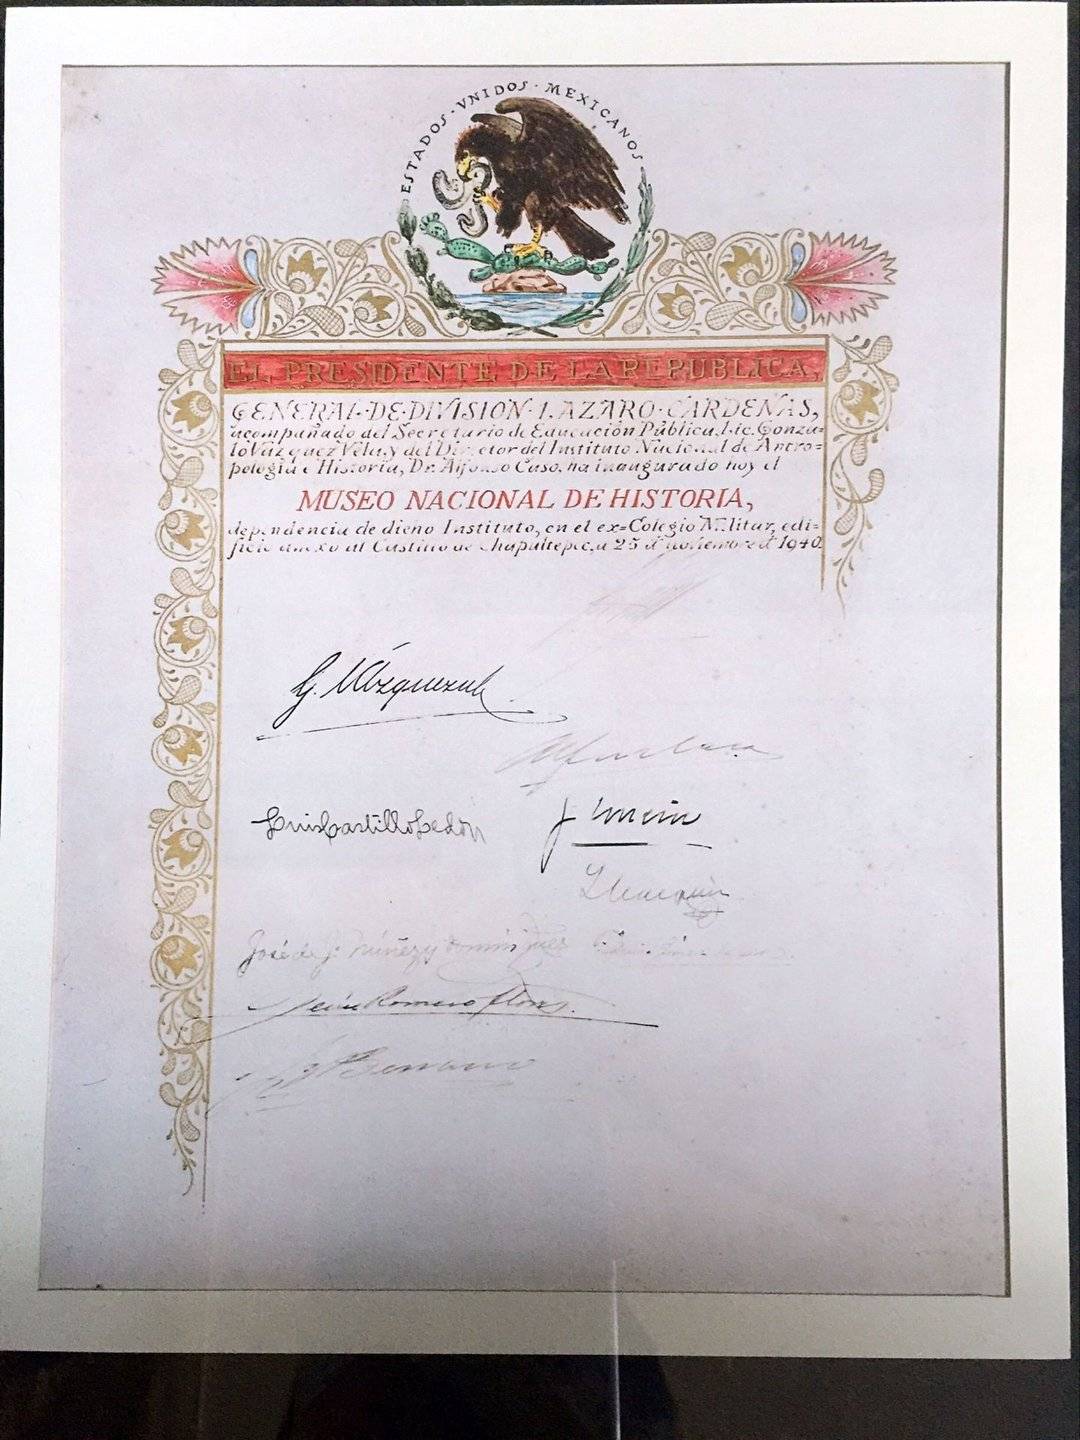 ESTADOS·VNIDOS·MEXICANOS
EL PRESIDENTE DE LA REPUBLICA,
GENERAL·DE·DIVISION·LAZARO·CARDENAS,
acompañado del Secretario de Educación Pública, Lic. Gonza=
lo Vázquez Vela, y del Director del Instituto Nacional de Antro=
pología e Historia, Dr. Alfonso Caso, ha inaugurado hoy el
MUSEO NACIONAL DE HISTORIA,
dependencia de dicho Instituto, en el ex=Colegio Militar, edi=
ficio anexo al Castillo de Chapultepec, a 25 de noviembre de 1940.
G. Vázquez Vela
Alfonso Caso
Luis Castillo Ledón
José de J. Núñez y Domínguez
Jesús Romero Flores.